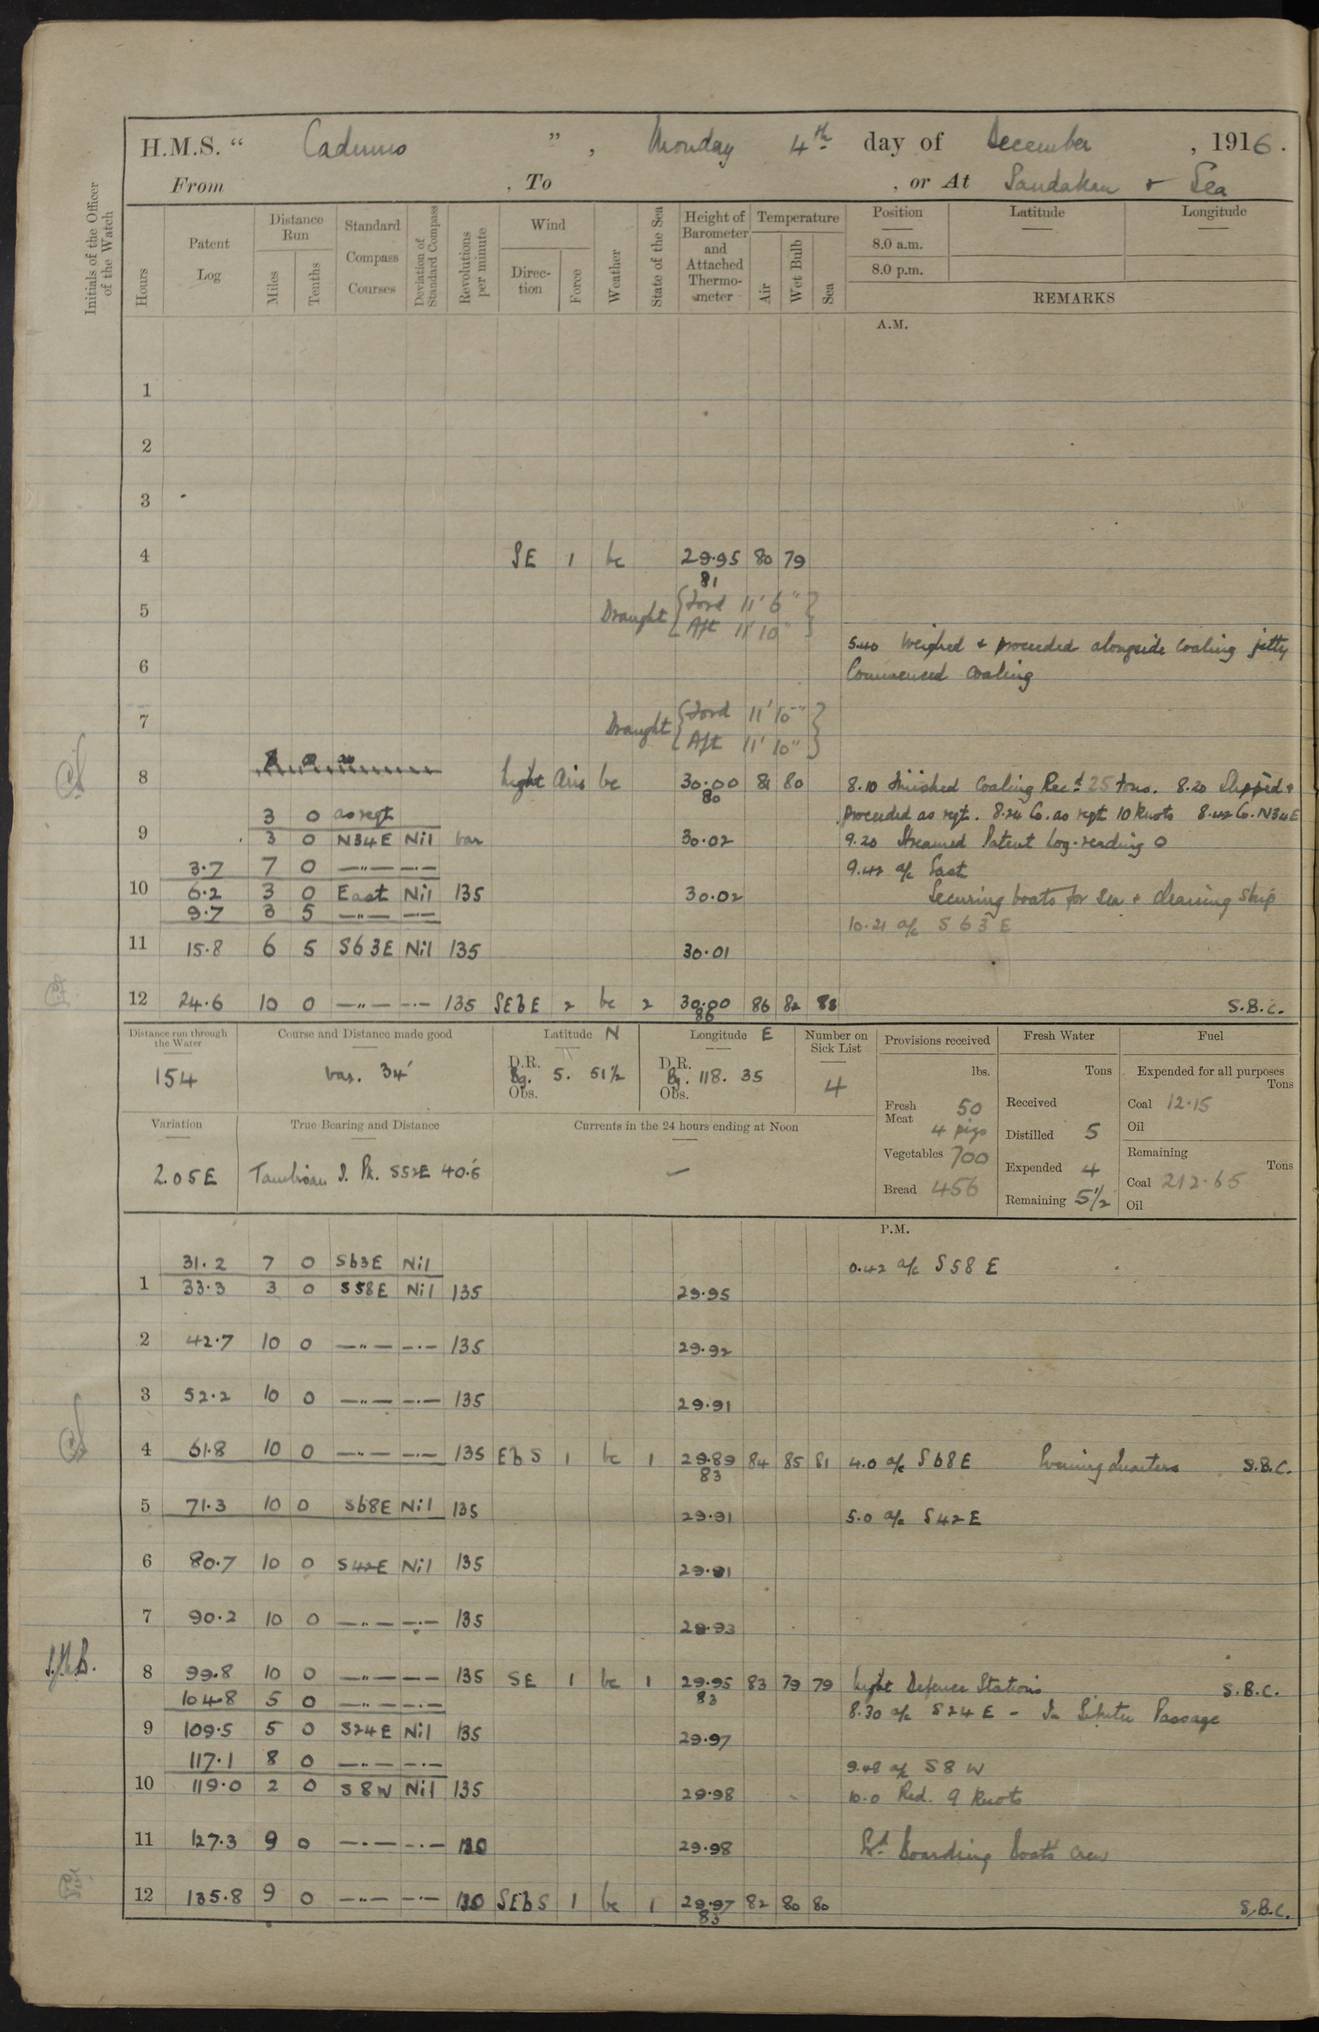 H.M.S. “ Cadmus ”, Monday 4th day of December, 1916.
From , To , or At Sandakan & Sea
Initials of the Officer of the Watch
Hours
Patent Log
Distance Run
Miles
Tenths
Standard Compass Courses
Deviation of Standard Compass
Revolutions per minute
Wind
Direction
Force
Weather
State of the Sea
Height of Barometer and Attached Thermometer
Temperature
Air
Wet Bulb
Sea
Position
Latitude
Longitude
8.0 a.m.
8.0 p.m.
REMARKS
A.M.
1
2
3
4 SE 1 bc 29.95 80 79
81
5 Draught { Ford 11' 6" }
{ Aft 11' 10" }
5.40 Weighed & proceeded alongside coaling jetty
6 Commenced coaling
7 Draught { Ford 11' 10" }
{ Aft 11' 10" }
8 Light Airs bc 30.00 81 80 8.10 finished coaling Recd 25 tons. 8.20 Slipped &
80
3 0 as reqt proceeded as reqt. 8.24 Co. as reqt 10 knots 8.42 Co. N34E
9 3 0 N34E Nil var 30.02 9.20 Streamed Patent Log - reading 0
3.7 7 0 —"— —.— 9.42 a/c East
10 6.2 3 0 East Nil 135 30.02 Securing boats for Sea & cleaning Ship
9.7 3 5 —"— —.— 10.21 a/c S 63 E
11 15.8 6 5 S63E Nil 135 30.01
12 24.6 10 0 —"— —.— 135 SEbE 2 bc 2 30.00 86 82 83 S.B.C.
86
Distance run through the Water
154
Course and Distance made good
var. 34'
Latitude N
D.R.
Bg. 5. 51½
Obs.
Longitude E
D.R.
Bg. 118. 35
Obs.
Number on Sick List
4
Provisions received
lbs.
Fresh Meat 50
4 pigs
Vegetables 700
Bread 456
Fresh Water
Tons
Received
Distilled 5
Expended 4
Remaining 5½
Fuel
Expended for all purposes
Tons
Coal 12.15
Oil
Remaining
Tons
Coal 212.65
Oil
Variation
2.05E
True Bearing and Distance
I. Pk. S52E 40.6'
Currents in the 24 hours ending at Noon
—
P.M.
31.2 7 0 S63E Nil 0.42 a/c S58E
1 33.3 3 0 S58E Nil 135 29.95
2 42.7 10 0 —"— —.— 135 29.92
3 52.2 10 0 —"— —.— 135 29.91
4 61.8 10 0 —"— —.— 135 EbS 1 bc 1 29.89 84 85 81 4.0 a/c S68E Evening Quarters S.B.C.
83
5 71.3 10 0 S68E Nil 135 29.91 5.0 a/c S42E
6 80.7 10 0 S42E Nil 135 29.91
7 90.2 10 0 —"— —.— 135 29.93
8 99.8 10 0 —"— —— 135 SE 1 bc 1 29.95 83 79 79 Light Defence Stations S.B.C.
83
104.8 5 0 —"— —.— 8.30 a/c S24E - In Sibutu Passage
9 109.5 5 0 S24E Nil 135 29.97
117.1 8 0 —"— —.— 9.48 a/c S8W
10 119.0 2 0 S8W Nil 135 29.98 10.0 Red. 9 knots
11 127.3 9 0 —.— —.— 120 29.98 Boarding Boats crew
12 135.8 9 0 —"— —.— 120 SEbS 1 bc 1 29.97 82 80 80 S.B.C.
83